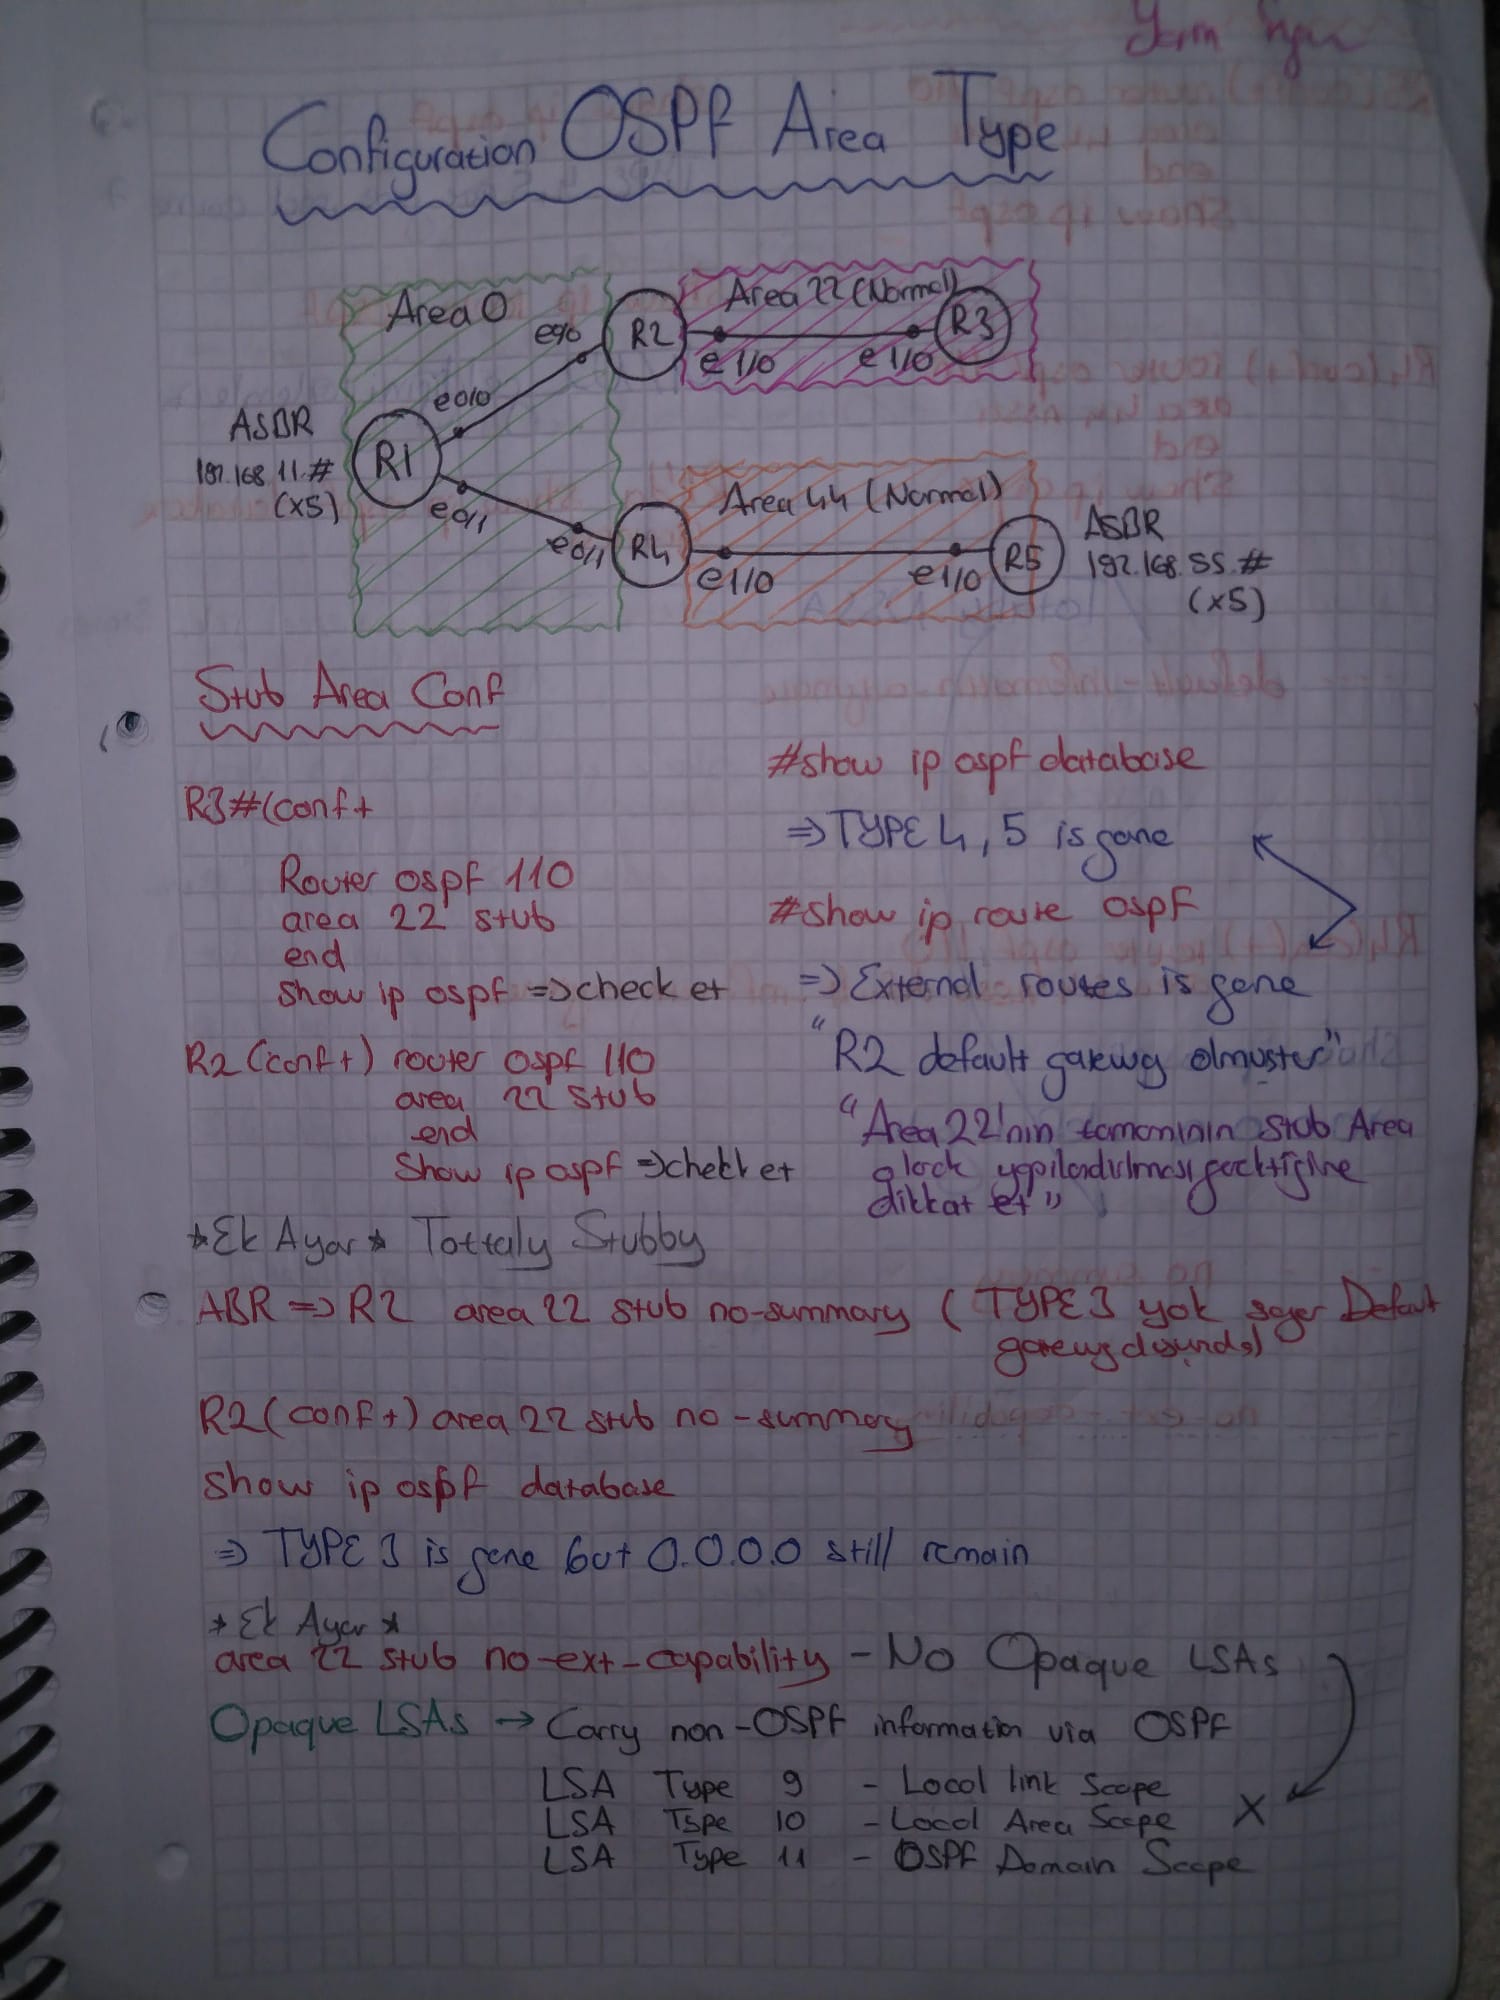 Configuration OSPF Area Type
Area 0
Area 22 (Normal)
e0/0
R2
e1/0
e1/0
R3
e0/0
ASBR
192.168.11.#
(x5)
R1
e0/1
e0/1
R4
Area 44 (Normal)
e1/0
e1/0
R5
ASBR
192.168.55.#
(x5)
Stub Area Conf
R3#(conf t
Router ospf 110
area 22 stub
end
show ip ospf => check et
R2 (conf t) router ospf 110
area 22 stub
end
Show ip ospf => chekk et
#show ip ospf database
=> TYPE 4, 5 is gone
#show ip route ospf
=> External routes is gone
"R2 default gatewy olmuster"
"Area 22'nin tamamının stub Area
olarak yapılandırılması gerektiğine
dikkat et"
*Ek Ayar* Tottaly Stubby
ABR => R2 area 22 stub no-summary ( TYPE 3 yok sayar Default
gatewy dışında)
R2 (conf t) area 22 stub no-summary
show ip ospf database
=> TYPE 3 is gone but 0.0.0.0 still remain
*Ek Ayar*
area 22 stub no-ext-capability - No Opaque LSAs
Opaque LSAs → Carry non-OSPF information via OSPF
LSA Type 9 - Local link Scope
LSA Type 10 - Local Area Scope X
LSA Type 11 - OSPF Domain Scope